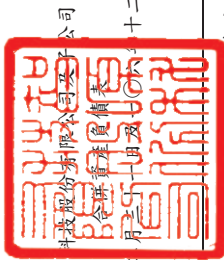 科技股份有限公司及子公司
合併資產負債表
月三十一日及一〇六年十二